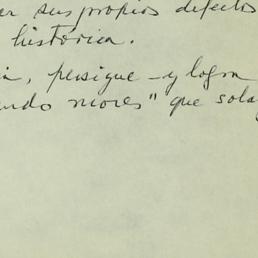 er sus propios defectos
histórica.
persigue - y logra
ndo mores" que sola